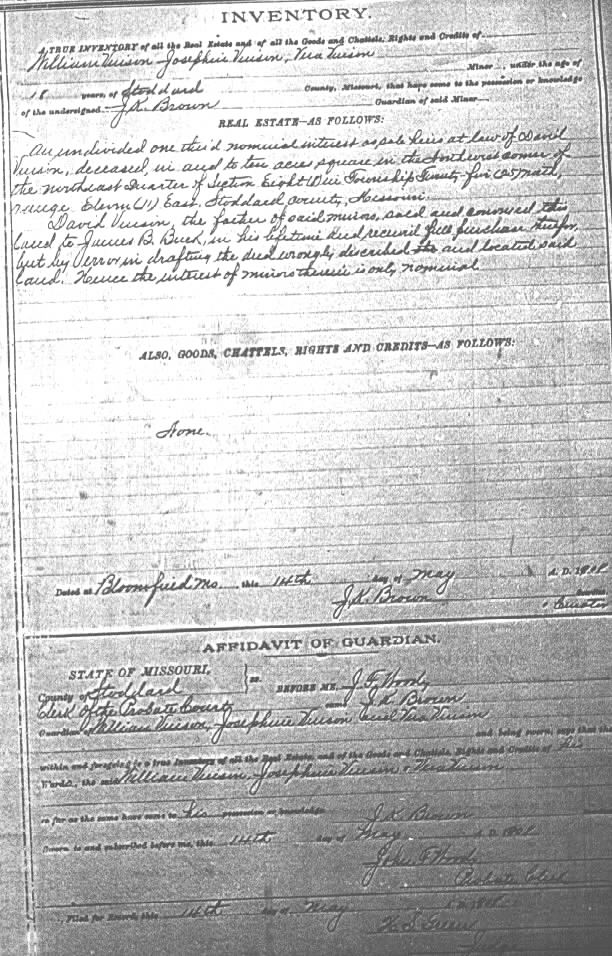 INVENTORY.
A TRUE INVENTORY of all the Real Estate and of all the Goods and Chattels, Rights and Credits of
William Vinson Josephine Vinson, Vera Vinson
Minor , under the age of
18 years, of Stoddard County, Missouri, that have come to the possession or knowledge
of the undersigned J.K. Brown Guardian of said Minor
REAL ESTATE—AS FOLLOWS:
An undivided one third nominal interest as sole heirs at law of David
Vinson, deceased, in and to ten acres square in the corner of
the northeast Quarter of Section Eight Township Twenty five (25) north,
range Eleven (11) East, Stoddard County, Missouri.
David Vinson, the father of said minors, sold and conveyed this
land to James B. Buck, in his lifetime and received full purchase therefor,
but by error in drafting the deed wrongly discribed and located said
land. Hence the interest of minors therein is only nominal
ALSO, GOODS, CHATTELS, RIGHTS AND CREDITS—AS FOLLOWS:
None.
Dated at Bloomfield Mo. this 14th day of May A. D.
J.K. Brown
Curator
AFFIDAVIT OF GUARDIAN.
STATE OF MISSOURI,
County of Stoddard ss. BEFORE ME, J F Woody
Clerk of the Probate Court came J.K. Brown
Guardian of William Vinson, Josephine Vinson and Vera Vinson
and being sworn, says that the
within and foregoing is a true Inventory of all the Real Estate, and of the Goods and Chattels, Rights and Credits of his
Wards, the said William Vinson, Josephine Vinson + Vera Vinson
so far as the same have come to his possession or knowledge.
J.K. Brown
Sworn to and subscribed before me, this 14th day of May A. D.
John F Woody
Probate Clerk
Filed for Record, this 14th day of May A. D.
Green
Judge